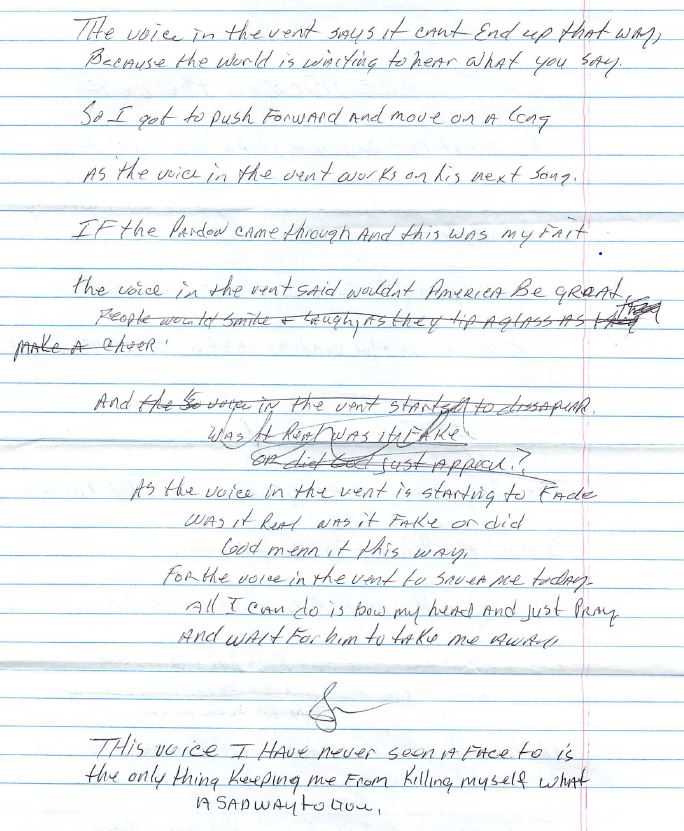 The voice in the vent says it cant End up that way,
Because the world is waiting to hear what you say.
So I got to push Forward And move on A long
As the voice in the vent works on his next song.
IF the Pardon came through And this was my Fait
the voice in the vent said wouldnt America Be great
People would smile & Laugh, As they tip A glass As they
make A cheer
And the voice in the vent started to dissapear.
Was it Real was it Fake
or did God just Appear?
As the voice in the vent is starting to Fade
Was it Real was it Fake or did
God menn it this way,
For the voice in the vent to saver me today.
All I can do is bow my head And just Pray
And wait For him to take me Away
This voice I Have never seen A Face to is
the only thing Keeping me From Killing myself what
A SAD way to live,